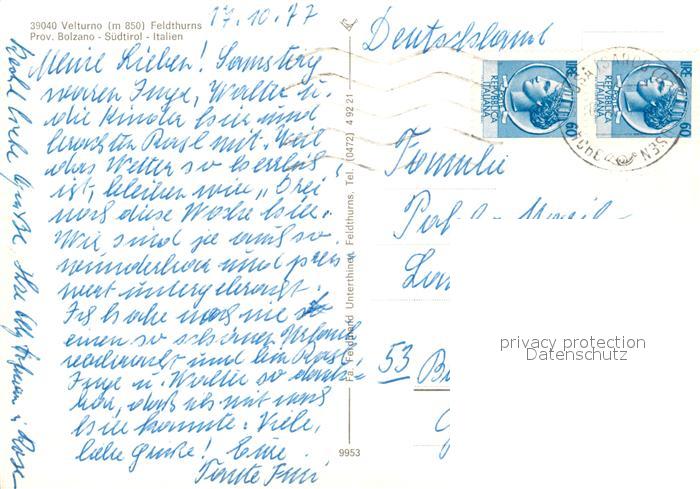 39040 Velturno (m 850) Feldthurns
Prov. Bolzano - Südtirol - Italien
17.10.77
Meine Lieben! Samstag
waren Inge, Walter u.
die Kinder hier und
brachten Rasl mit. Weil
das Wetter so herrlich
ist, bleiben wir "Drei"
noch diese Woche hier.
Wir sind ja auch so
wunderbar und preis
wert untergebracht.
Ich habe noch nie
einen so schönen Urlaub
verbracht und bin
Inge u. Walter so dank-
bar, daß ich mit nach
hier konnte. Viele,
liebe Grüße! Eure
Tante Finni
Recht liebe Grüße Ihre
Fa. Ferdinand Unterthiner, Feldthurns. Tel. (0472) 4 92 21
9953
Deutschland
LIRE 60
REPVBBLICA ITALIANA
LIRE 60
REPVBBLICA ITALIANA
Familie
53
privacy protection
Datenschutz